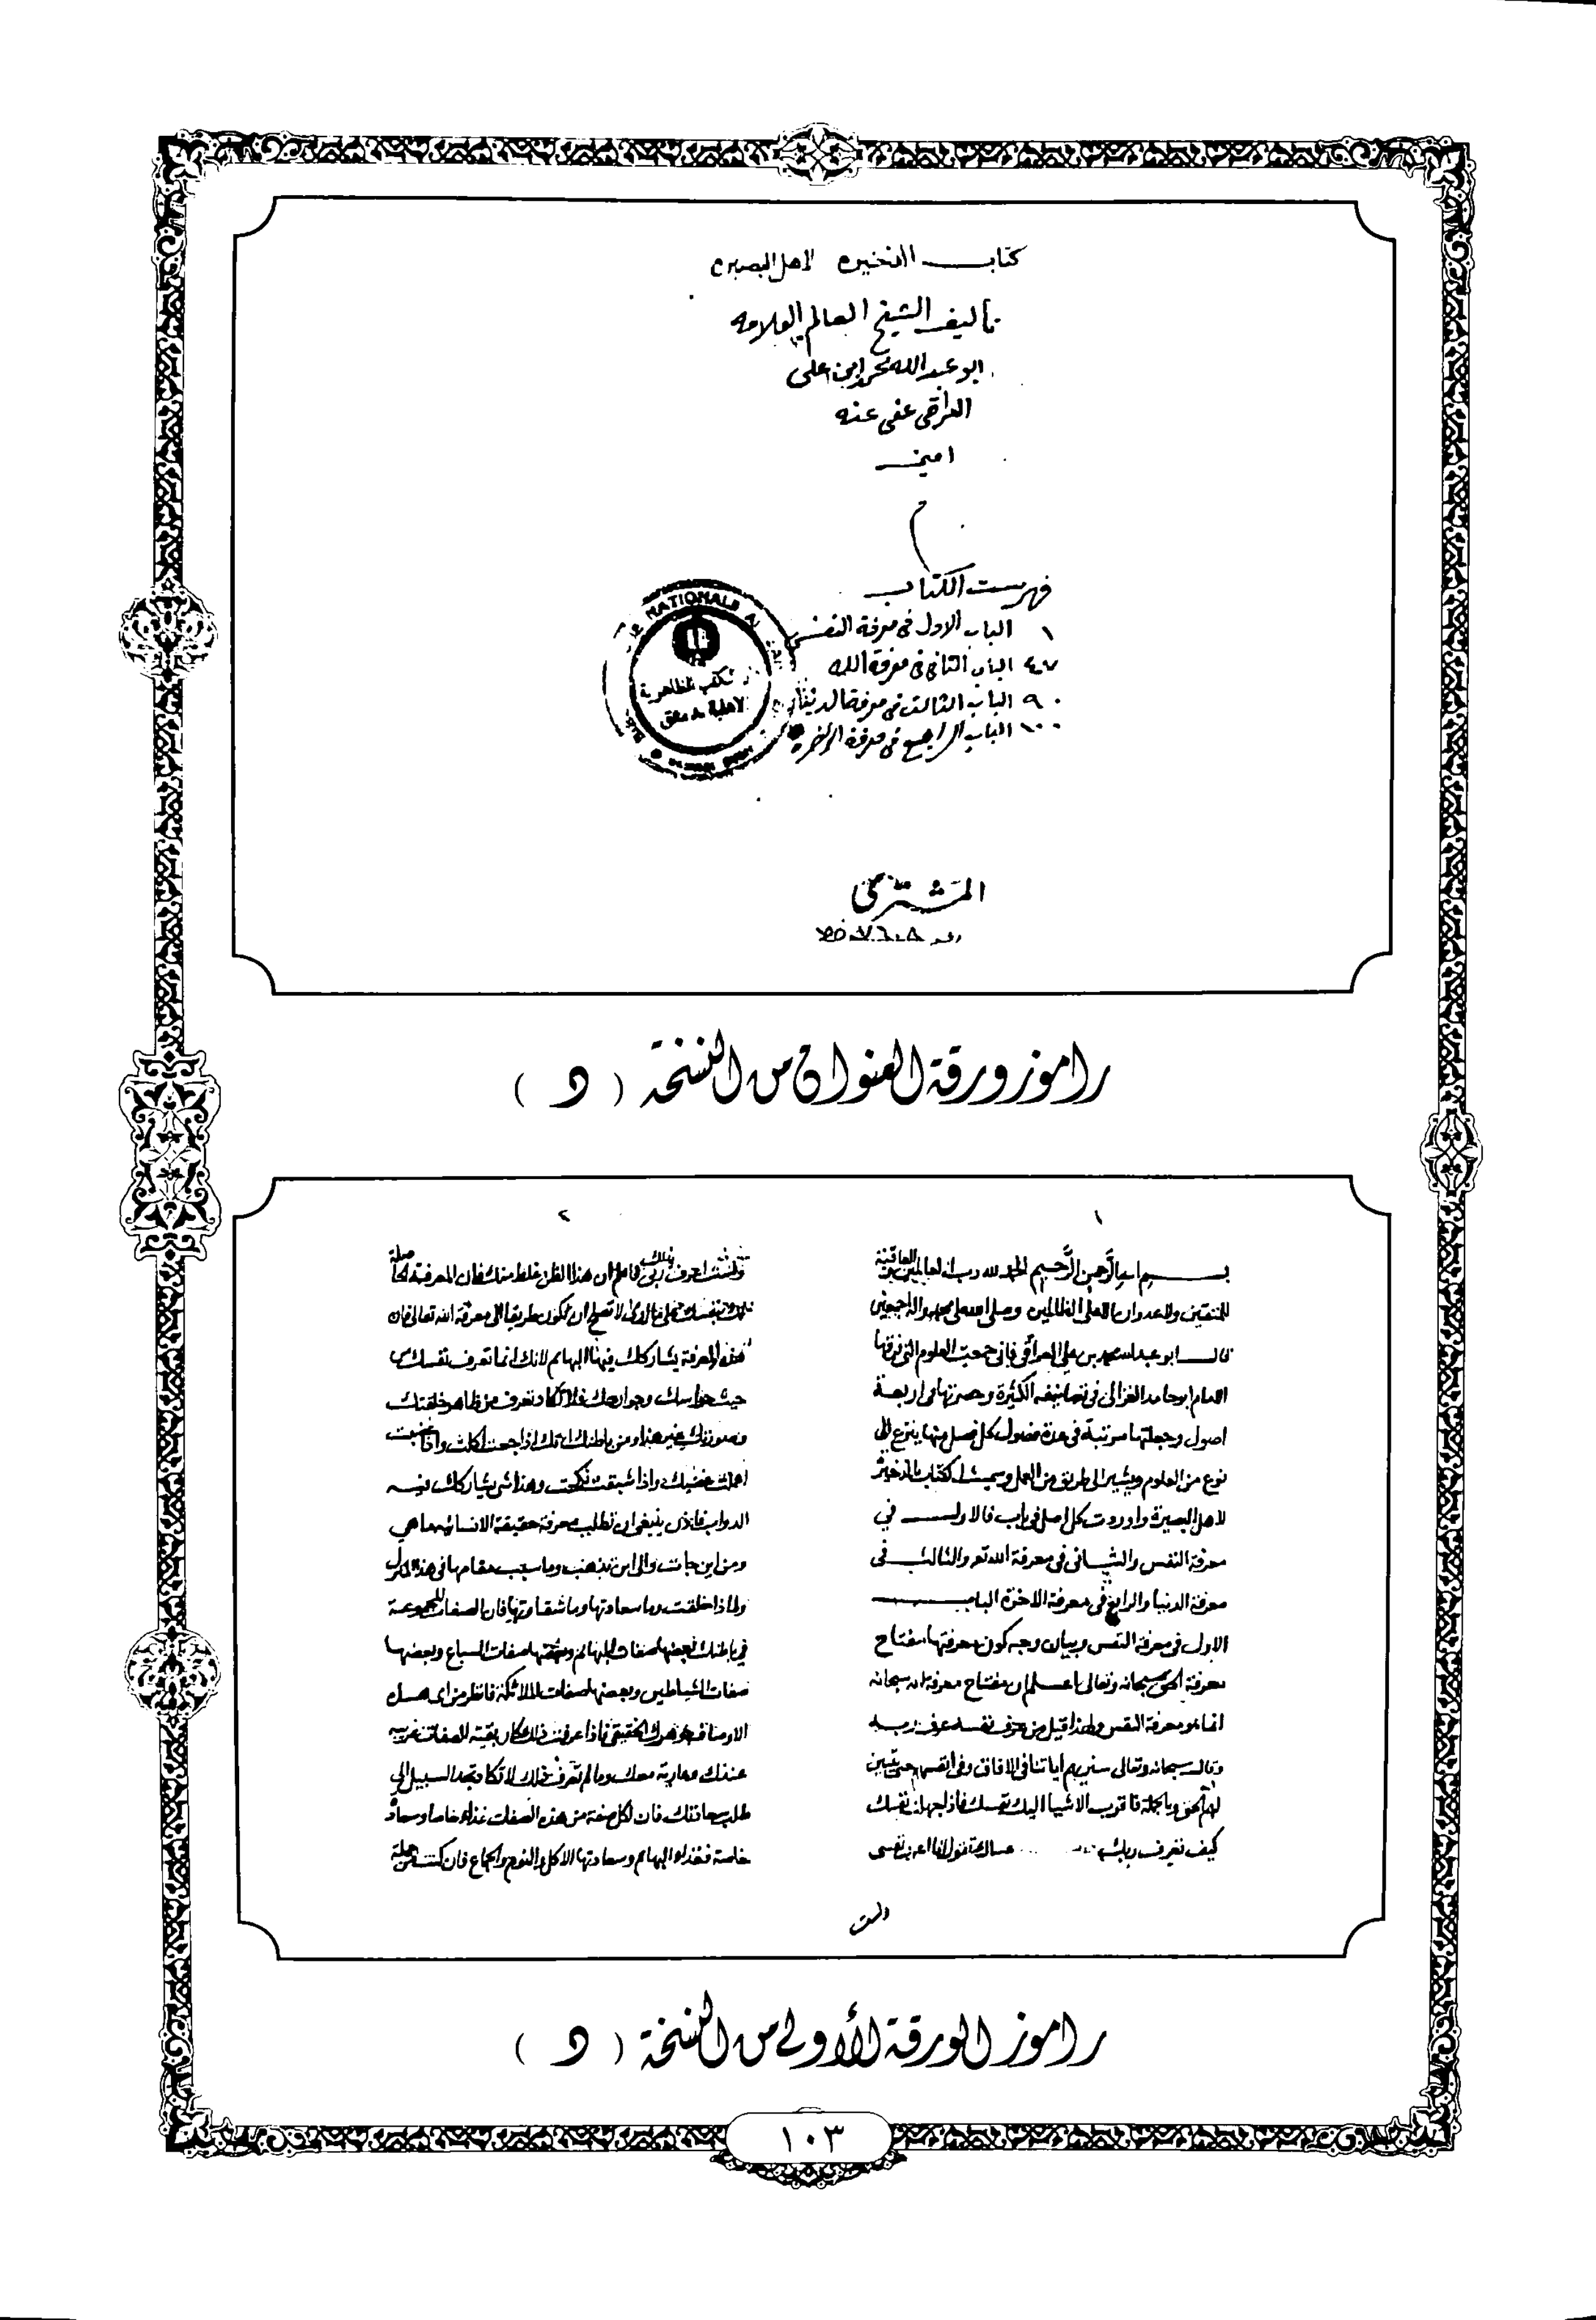 كتاب الذخيره لاهل البصيره
تاليف الشيخ العالم العلامه
ابو عبد الله محمد ابن على
العراقى عفى عنه
امين
فهرست الكتاب
١ الباب الاول فى معرفة النفس
٤٧ الباب الثانى فى معرفة الله
٩٠ الباب الثالث فى معرفة الدنيا
١٠٠ الباب الرابع فى معرفة الاخره
NATIONALE
الكتب الظاهرية
الاهلية دمشق
المشترى
راموز ورقة العنوان من النسخة ( د )
١
بسم الله الرحمن الرحيم الحمد لله رب العالمين والعاقبة
للمتقين ولا عدوان الا على الظالمين وصلى الله على محمد واله اجمعين
قال ابو عبد الله محمد بن على العراقى فانى جمعت العلوم التى فرقها
الامام ابو حامد الغزالى فى تصانيفه الكثيرة وحصرتها فى اربعة
اصول وجعلتها مرتبة فى عدة فصول كل فصل منها ينزع الى
نوع من العلوم ويشير الى طريق من العمل وسميت الكتاب بالذخيرة
لاهل البصيرة واوردت كل اصل فى باب فالاول فى
معرفة النفس والثانى فى معرفة الله تع والثالث فى
معرفة الدنيا والرابع فى معرفة الاخرة الباب
الاول فى معرفة النفس وبيان وجه كون معرفتها مفتاح
معرفة الحق سبحانه وتعالى اعلم ان مفتاح معرفة الله سبحانه
انما هو معرفة النفس ولهذا قيل من عرف نفسه عرف ربه
وقال سبحانه وتعالى سنريهم اياتنا فى الافاق وفى انفسهم حتى يتبين
لهم الحق وبالجملة فاقرب الاشيا اليك نفسك فاذا جهلت نفسك
كيف تعرف ربك تقول انا اعرف نفسى
ولست
٢
ولست اعرف ربى فاعلم ان هذا الظن غلط منك فان المعرفة الحاصلة
لك بنفسك على لا تصلح ان تكون طريقا الى معرفة الله تعالى فان
هذه المعرفة يشاركك فيها البهائم لانك انما تعرف نفسك من
حيث حواسك وجوارحك فلا تكاد تعرف من ظاهر خلقتك
وصورتك غير هذا ومن باطنك انك اذا جعت اكلت واذا غضبت
اعملت غضبك واذا شبقت نكحت وهذا شى يشاركك فيه
الدواب فاذن ينبغى ان تطلب معرفة حقيقة الانسانية ما هى
ومن اين جائت والى اين تذهب وما سبب مقامها فى هذا المنزل
ولماذا خلقت وما سعادتها وما شقاوتها فان الصفات المجموعة
فى باطنك بعضها صفات البهائم وبعضها صفات السباع وبعضها
صفات الشياطين وبعضها صفات الملائكة فانظر من اى هذه
الاوصاف جوهرك الحقيقى فاذا عرفت ذلك كان بقية الصفات غريبه
عندك وعارية معك وما لم تعرف ذلك لا تكاد تجد السبيل الى
طلب سعادتك فان لكل صفة من هذه الصفات غذاء خاصا وسعادة
خاصة فغذاء البهائم وسعادتها الاكل والنوم والجماع فان كنت من جملة
راموز الورقة الأولى من النسخة ( د )
١٠٣